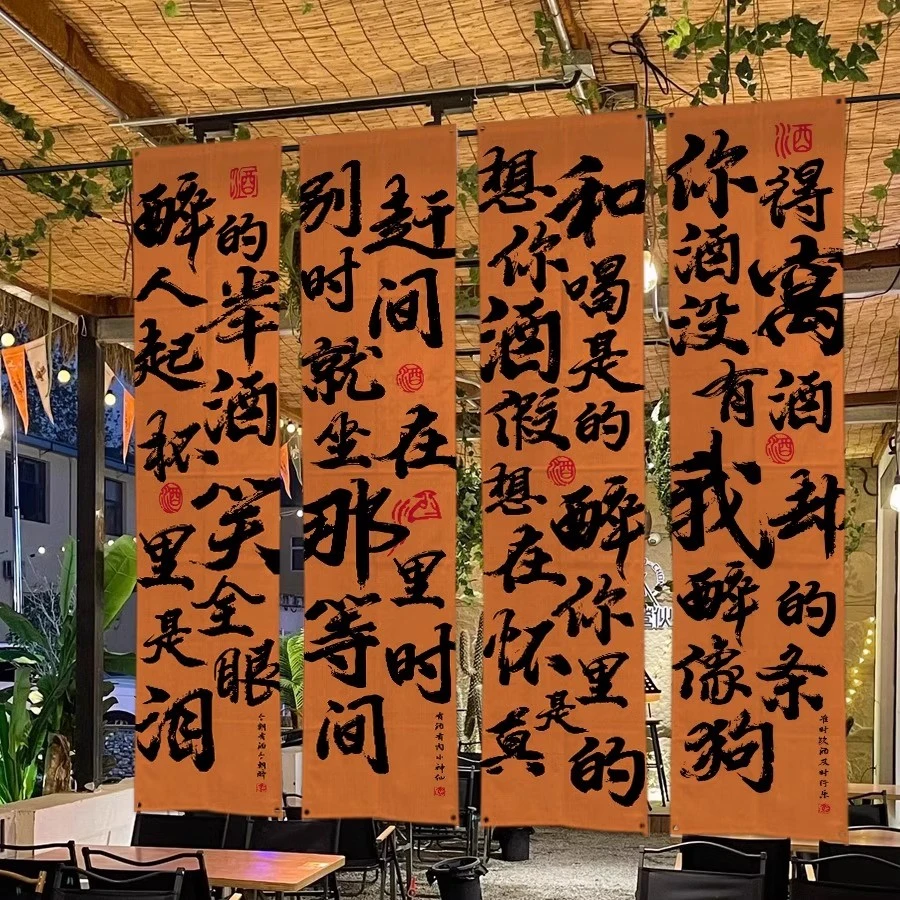 醉的人举起酒杯
笑里全是眼泪
酒
酒
今朝有酒今朝醉
别赶时间
就坐在那里等时间
酒
酒
有酒有肉小神仙
想和你喝酒是假的
想醉在你怀里是真的
酒
你得酒窝没有酒
我却醉的像条狗
酒
酒
准时饮酒及时行乐